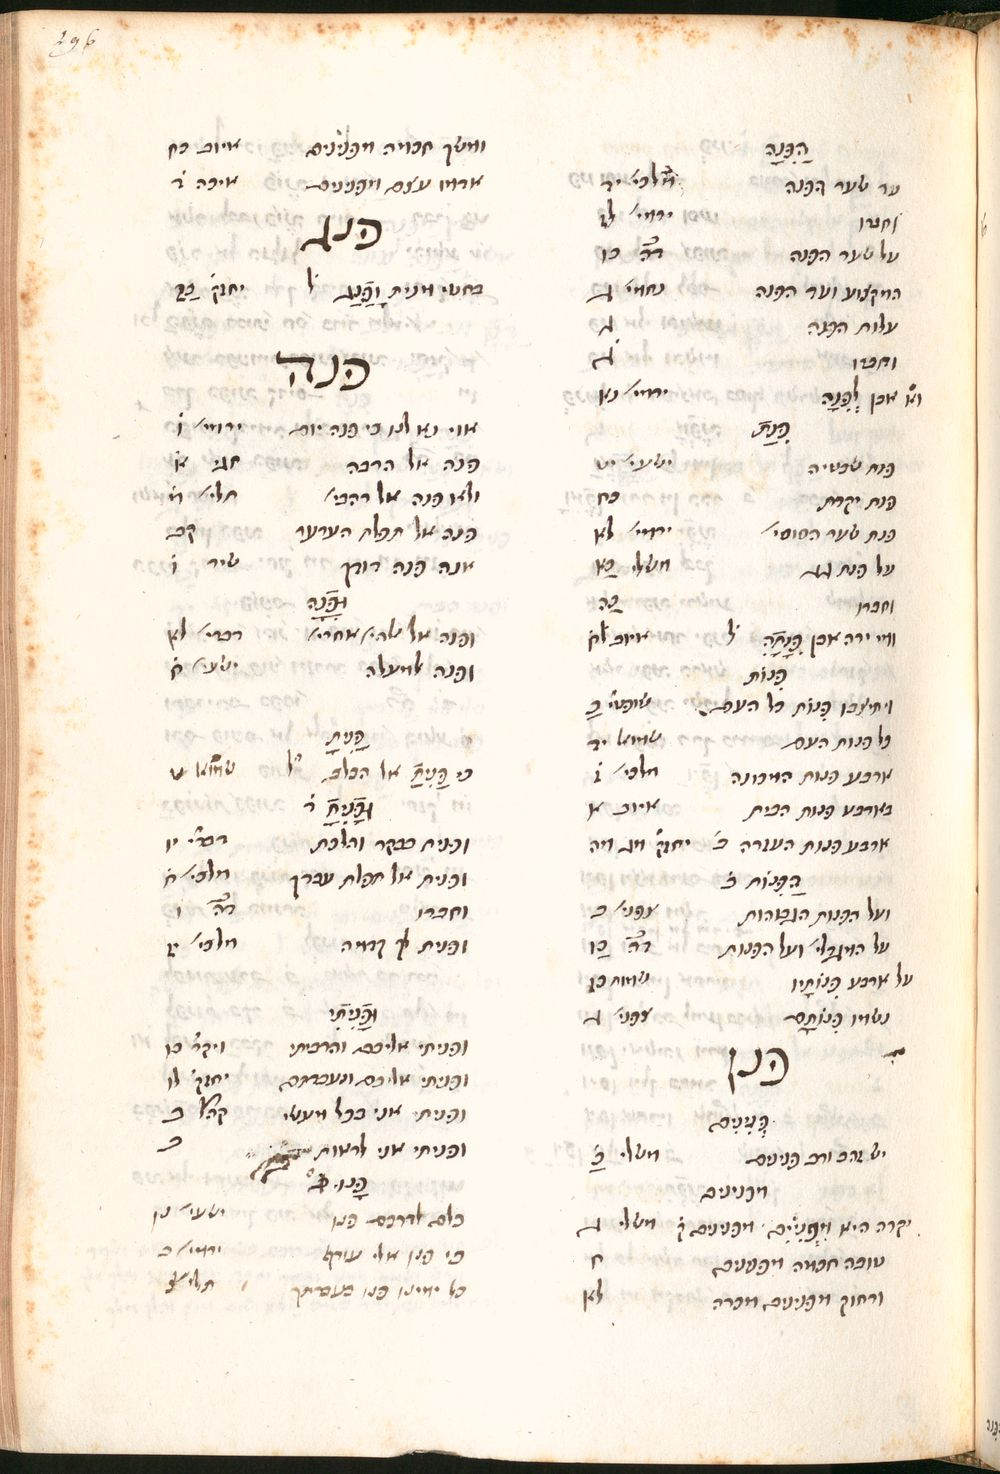 296
הַפִּנָּה
עד שער הפנה מלכי׳ יד
וחברו ירמי׳ לא
על שער הפנה דה׳ כו
המקצוע ועד הפנה נחמי׳ ג
עלית הפנה ג
וחברו ג
אבן לְפִנָּה ירמי׳ נא
פִּנַּת
פנת שבטיה ישעי׳ יט
פנת יקרת כח
פנת שער הסוסי׳ ירמי׳ לא
על פנת גג משלי כא
וחברו כה
מי ירה אבן פִּנָּתָהּ ל׳ איוב לח
פִּנּוֹת
ויתיצבו פִּנּוֹת כל העם שופטי׳ כ
כל פנות העם שמוא׳ יד
ארבע פנות המכונה מלכי׳ ז
בארבע פנות הבית איוב א
ארבע פנות העזרה ב׳ יחזק׳ מג מה
הַפִּנּוֹת ב׳
ועל הפנות הגבוהות צפני׳ א
על המגדלי׳ ועל הפנות דה׳ כו
על ארבע פִּנּוֹתָיו שמות כז
נשמו פִּנּוֹתָם צפני׳ ג
פנן
פְּנִינִים
יש זהב ורב פנינים משלי כ
מפנינים
יקרה היא מִפְּנִיִּים מפנינים ק׳ משלי ג
טובה חכמה מפנינים ח
ורחוק מפנינים מכרה לא
ומשך חכמה מִפְּנִינִים איוב כח
אדמו עצם מפנינים איכה ד
פנג
בחטי מנית וּפַנַּג ל׳ יחזק׳ כז
פנה
אוי נא לנו כי פנה יום ירמי׳ ו
פנה אל הרבה חגי א
ולא פנה אל רהבי׳ תלי׳ מ
פנה אל תפלת הערער קב
אנה פנה דודך שיר ו
וּפָנָה
ופנה אל אלהי׳ אחרי׳ דברי׳ לא
ופנה למעלה ישעי׳ ח
פָּנִיתָ
כי פָנִיתָ אל הכלב ל׳ שמוא׳ ט
וּפָנִיתָ ד׳
ופנית בבקר והלכת דברי׳ יו
ופנית אל תפלת עבדך מלכי׳ ח
וחברו דה׳ ו
ופנית לך קדמה מלכי׳ יז
וּפָנִיתִי
ופניתי אליכם והרביתי ויקר׳ כו
ופניתי אליכם ונעבדתם יחזק׳ לו
ופניתי אני בכל מעשי קהל׳ ב
ופניתי אני לראות ב
פָּנוּ
כלם לדרכם פנו ישעי׳ נו
כי פנו אלי עורף ירמי׳ ב
כל ימינו פנו בעברתך תלי׳ צ